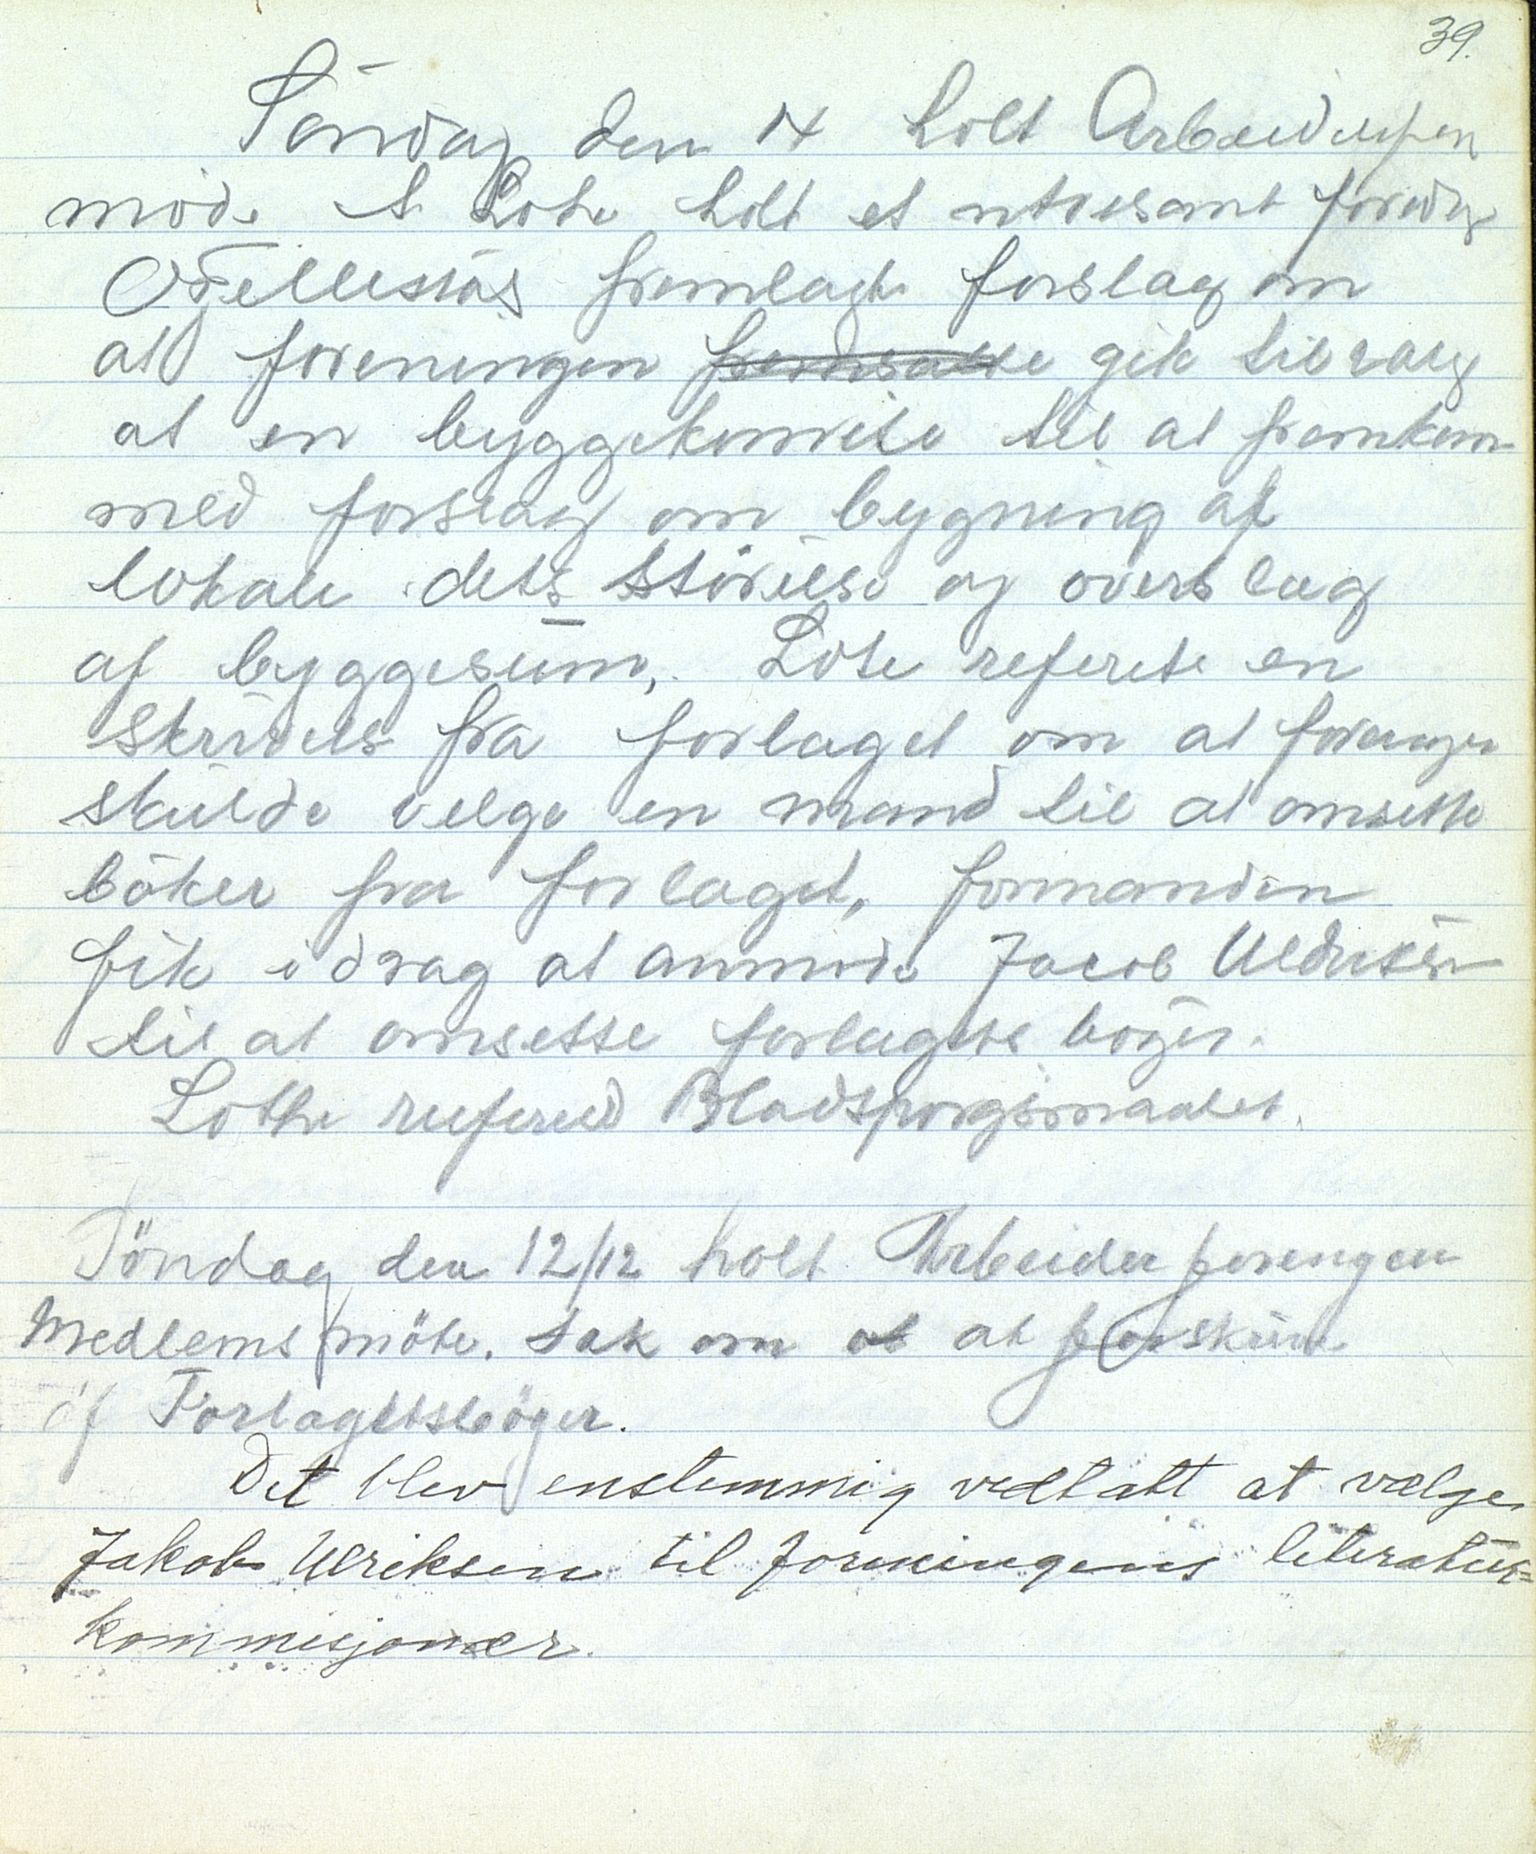 39.
Söndag den 14 holt Arbeiderfor
møde A Lothe holt et intresant foredrag
O Tellesbø fremlagde forslag om
at foreningen fremsatte gik til valg
at en byggekomite til at fremkom
med forslag om bygning af
lokale dets störelse og overslag
af byggesum, Lote referete en
skrivels fra forlaget om at foreningen
skulde velge en mand til at omsette
böker fra forlaget, formanden
fik i drag at anmode Jacob Uldriksen
til at omsette forlagets böger.
Lothe refered Bladspørgsmaalet.
Söndag den 12/12 holt Arbeider forengen
Medlems möte. Sak om at at
af Forlagetsböger.
Det blev enstemmig vedtatt at vælge
Jakob Ulriksen til foreningens literatur=
kommisjonær.